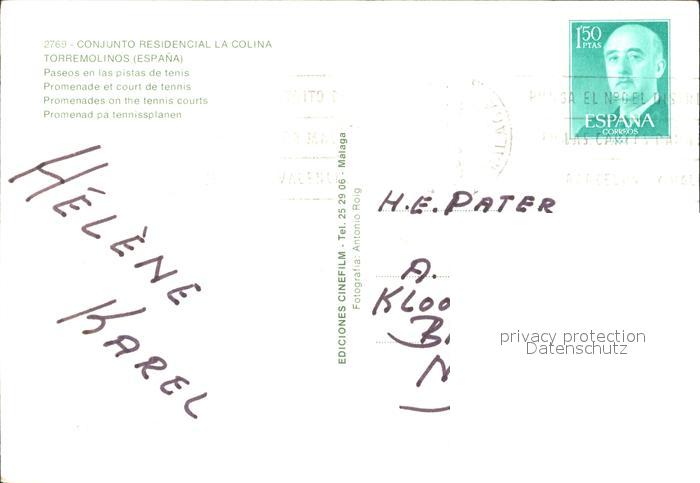 2769 - CONJUNTO RESIDENCIAL LA COLINA
TORREMOLINOS (ESPAÑA)
Paseos en las pistas de tenis
Promenade et court de tennis
Promenades on the tennis courts
Promenad pa tennissplanen
HÉLÈNE
KAREL
EDICIONES CINEFILM - Tel. 25 29 06 - Malaga
Fotografia: Antonio Roig
1'50
PTAS
ESPAÑA
CORREOS
H.E. PATER
A.
KLOO
B
N
privacy protection
Datenschutz